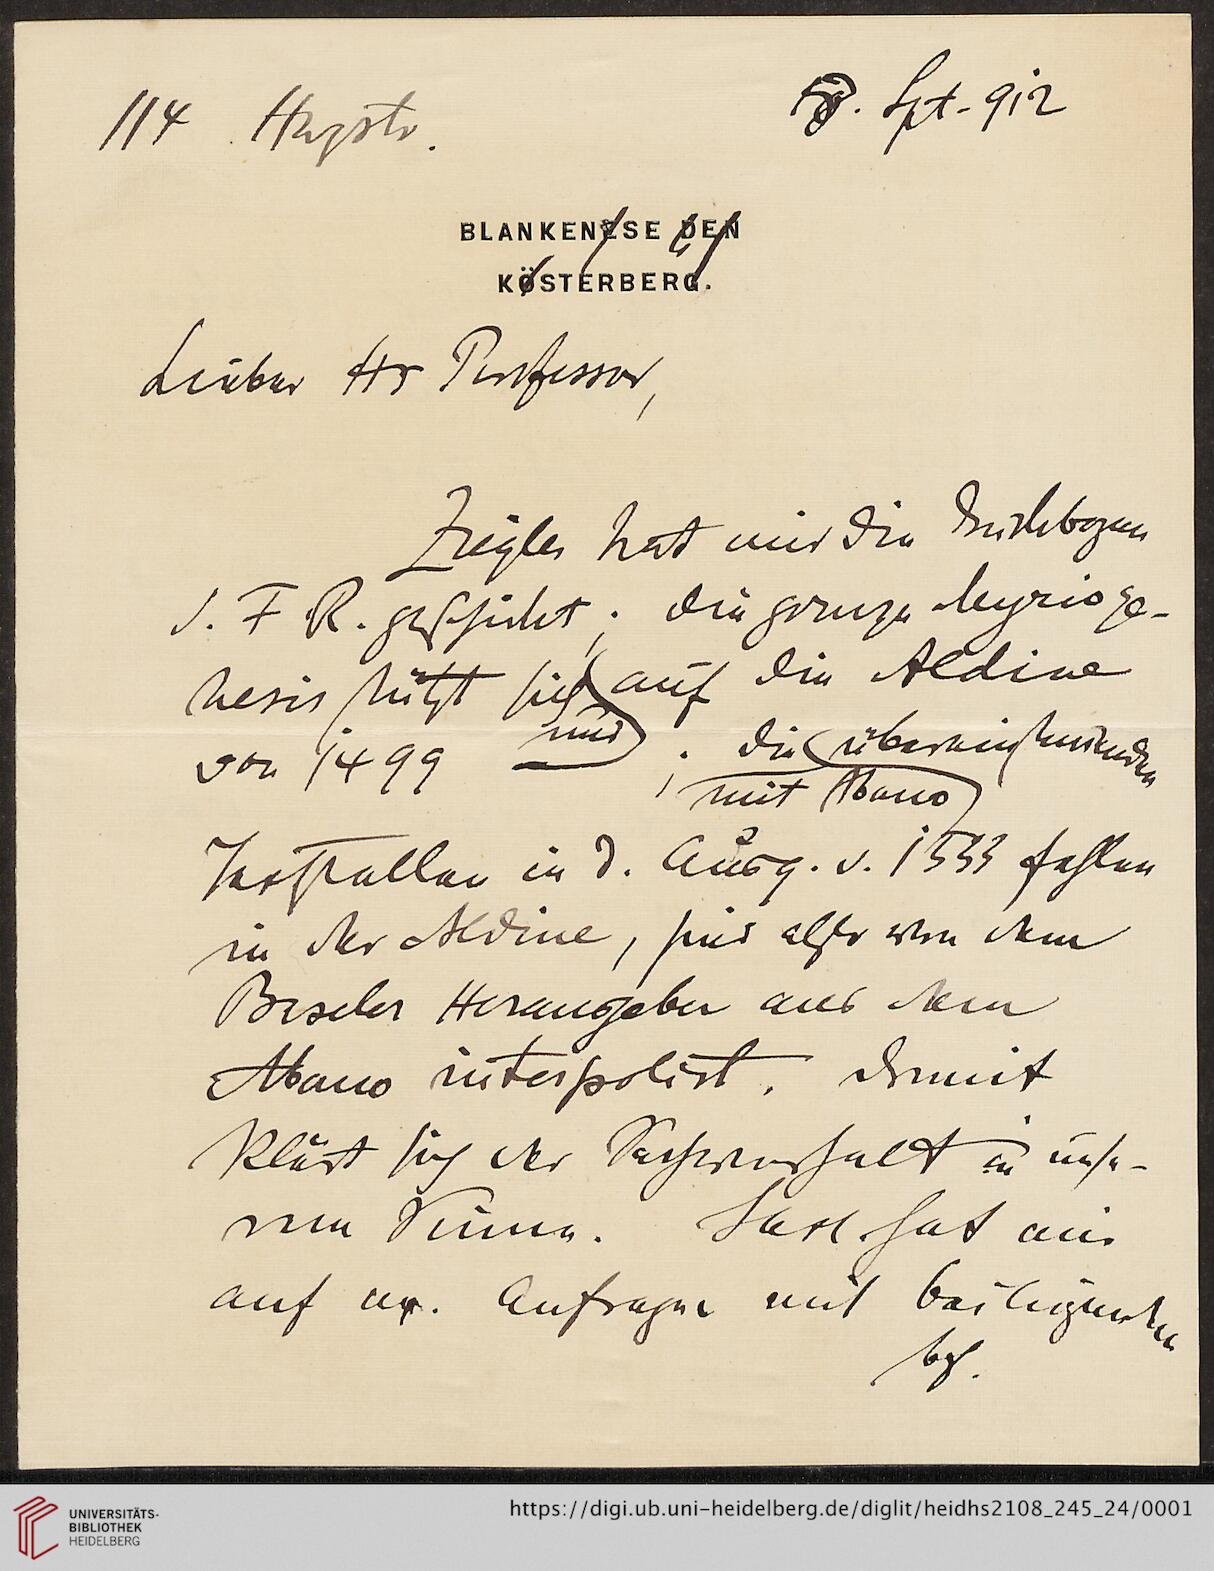 114 Heylstr.
Sept. 912
BLANKENESE DEN
KÖSTERBERG.
Lieber Hr Professor,
Ziegler hat mir die Druckbogen
d. F R. geschickt; die ganze Myrioge-
nesis stützt sich auf die Aldine
nur
von 1499 ; die übereinstimmenden
mit Abano
Textstellen in d. Ausg. v. 1533 fehlen
in der Aldine, sind also von dem
Baseler Herausgeber aus dem
Abano interpoliert. Damit
klärt sich der Sachverhalt in unse-
rem Sinne. hat mir
auf Anfragen mit beiliegenden